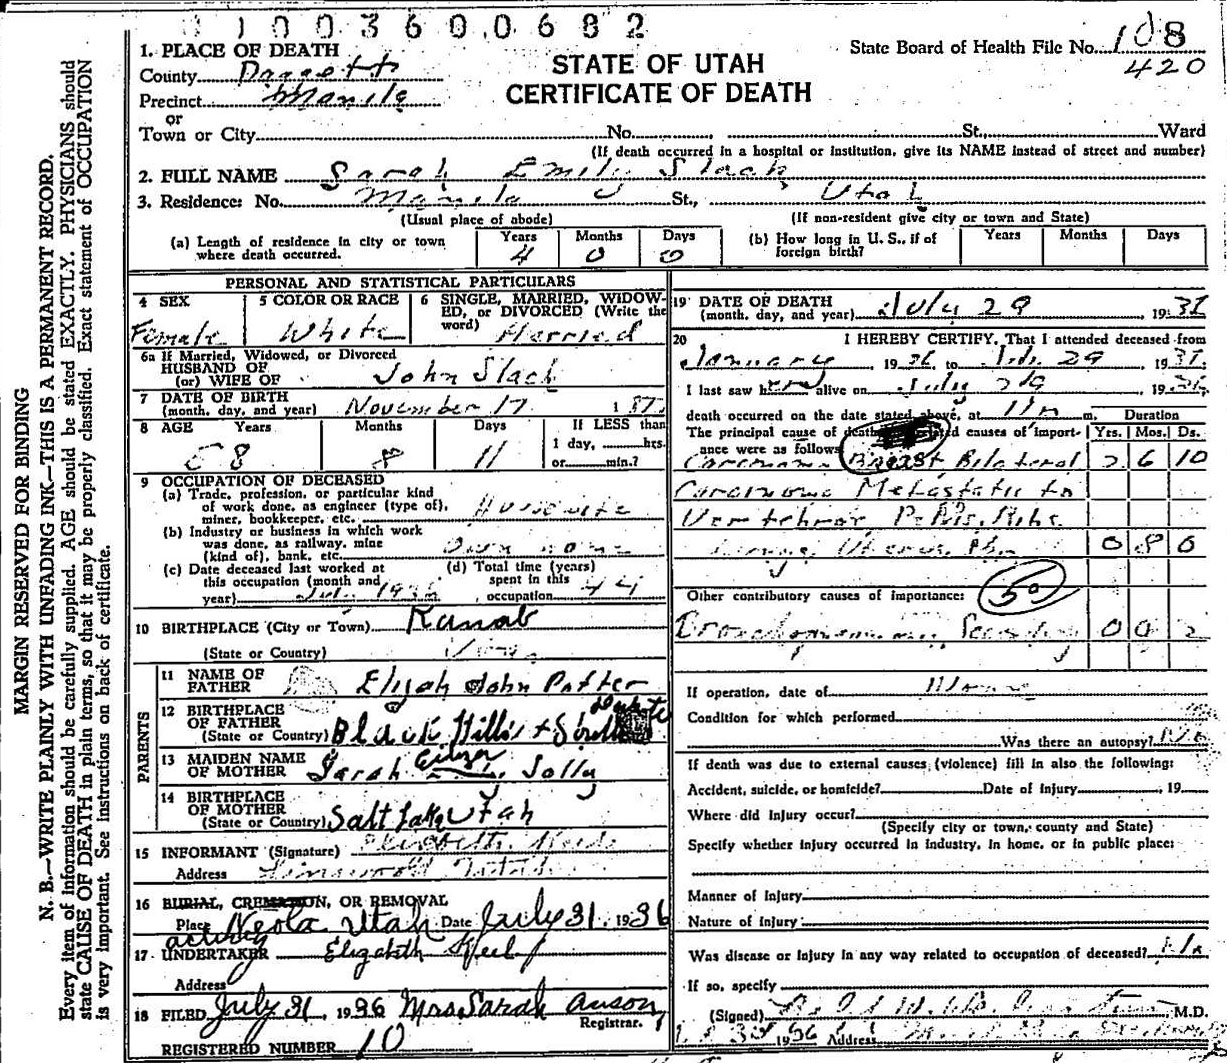 0 1 0 0 3 6 0 0 6 8 2
MARGIN RESERVED FOR BINDING
N. B.—WRITE PLAINLY WITH UNFADING INK—THIS IS A PERMANENT RECORD.
Every item of information should be carefully supplied. AGE should be stated EXACTLY. PHYSICIANS should
state CAUSE OF DEATH in plain terms, so that it may be properly classified. Exact statement of OCCUPATION
is very important. See instructions on back of certificate.
STATE OF UTAH
CERTIFICATE OF DEATH
State Board of Health File No. 108
420
1. PLACE OF DEATH
County Daggett
Precinct Manila
or
Town or City No. St., Ward
(If death occurred in a hospital or institution, give its NAME instead of street and number)
2. FULL NAME Sarah Emily Slack
3. Residence: No. Manila St., Utah
(Usual place of abode) (If non-resident give city or town and State)
(a) Length of residence in city or town where death occurred. Years 4 Months 0 Days 0
(b) How long in U. S., if of foreign birth? Years Months Days
PERSONAL AND STATISTICAL PARTICULARS
4 SEX Female
5 COLOR OR RACE White
6 SINGLE, MARRIED, WIDOWED, or DIVORCED (Write the word) Married
6a If Married, Widowed, or Divorced
HUSBAND OF
(or) WIFE OF John Slack
7 DATE OF BIRTH
(month, day, and year) November 17
8 AGE Years 58 Months 8 Days 11
If LESS than
1 day, hrs.
or min.?
9 OCCUPATION OF DECEASED
(a) Trade, profession, or particular kind
of work done, as engineer (type of),
miner, bookkeeper, etc. Housewife
(b) Industry or business in which work
was done, as railway, mine
(kind of), bank, etc. Own home
(c) Date deceased last worked at
this occupation (month and
year) July 1936
(d) Total time (years)
spent in this
occupation 44
10 BIRTHPLACE (City or Town) Kanab
(State or Country)
PARENTS
11 NAME OF
FATHER Elijah John Potter
12 BIRTHPLACE
OF FATHER
(State or Country) Black Hills South Dakota
13 MAIDEN NAME
OF MOTHER Sarah Eliza Jolly
14 BIRTHPLACE
OF MOTHER
(State or Country) Salt Lake Utah
15 INFORMANT (Signature) Elizabeth
Address
16 BURIAL, CREMATION, OR REMOVAL
Place Neola Utah Date July 31, 1936
acting
17 UNDERTAKER Elizabeth
Address
18 FILED July 31, 1936 Mrs Sarah Anson,
Registrar.
REGISTERED NUMBER 10
19 DATE OF DEATH
(month, day, and year) July 29, 193
20 I HEREBY CERTIFY, That I attended deceased from
January 1936 to 29 193
I last saw her alive on July 29 1936
death occurred on the date stated above, at 11 m. Duration
The principal cause of death and related causes of importance were as follows: Yrs. Mos. Ds.
Carcinoma Breast Bilateral 2 6 10
Carcinoma Metastatic to
Vertebrae Pelvis, Ribs
Uterus 0 8 0
Other contributory causes of importance: 50
Bronchopneumonia Secondary 0 0 2
If operation, date of None
Condition for which performed
Was there an autopsy? No
If death was due to external causes (violence) fill in also the following:
Accident, suicide, or homicide? Date of injury , 19
Where did injury occur?
(Specify city or town, county and State)
Specify whether injury occurred in industry, in home, or in public place:
Manner of injury
Nature of injury
Was disease or injury in any way related to occupation of deceased? No
If so, specify
(Signed) M.D.
1936 Address